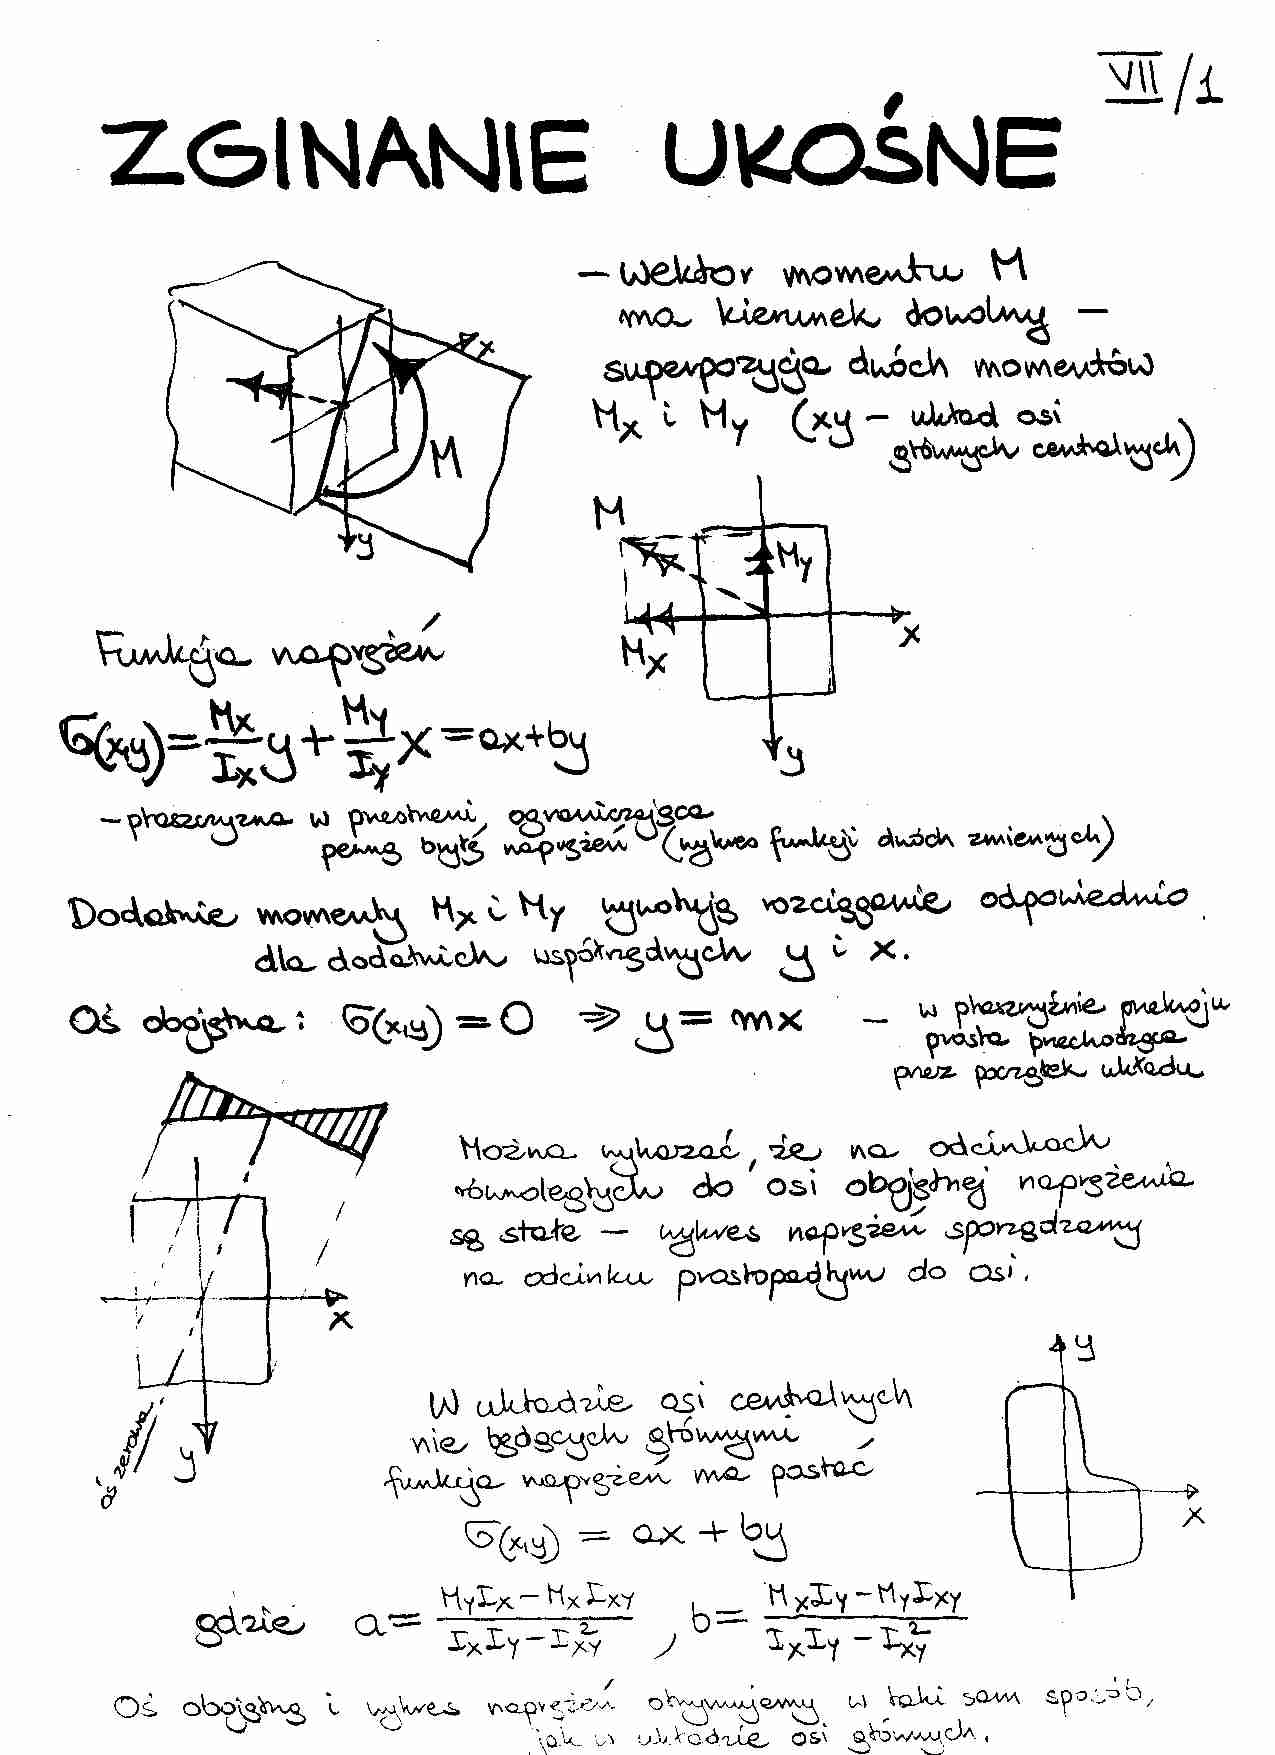 VII/1
ZGINANIE UKOŚNE
– Wektor momentu M
ma kierunek dowolny –
superpozycja dwóch momentów
Mx i My (xy – układ osi
głównych centralnych)
x
M
y
M
My
x
Mx
y
Funkcja naprężeń
σ(x,y) = Mx/Ix y + My/Iy x = ax+by
– płaszczyzna w przestrzeni, ograniczająca
pewną bryłę naprężeń (wykres funkcji dwóch zmiennych)
Dodatnie momenty Mx i My wywołują rozciąganie odpowiednio
dla dodatnich współrzędnych y i x.
Oś obojętna: σ(x,y) = 0 ⇒ y = mx – w płaszczyźnie przekroju
prosta przechodząca
przez początek układu
Można wykazać, że na odcinkach
równoległych do osi obojętnej naprężenia
są stałe – wykres naprężeń sporządzamy
na odcinku prostopadłym do osi.
x
y
oś zerowa
y
x
W układzie osi centralnych
nie będących głównymi
funkcja naprężeń ma postać
σ(x,y) = ax + by
gdzie a = (MyIx – MxIxy)/(IxIy – Ixy²), b = (MxIy – MyIxy)/(IxIy – Ixy²)
Oś obojętną i wykres naprężeń otrzymujemy w taki sam sposób,
jak w układzie osi głównych.